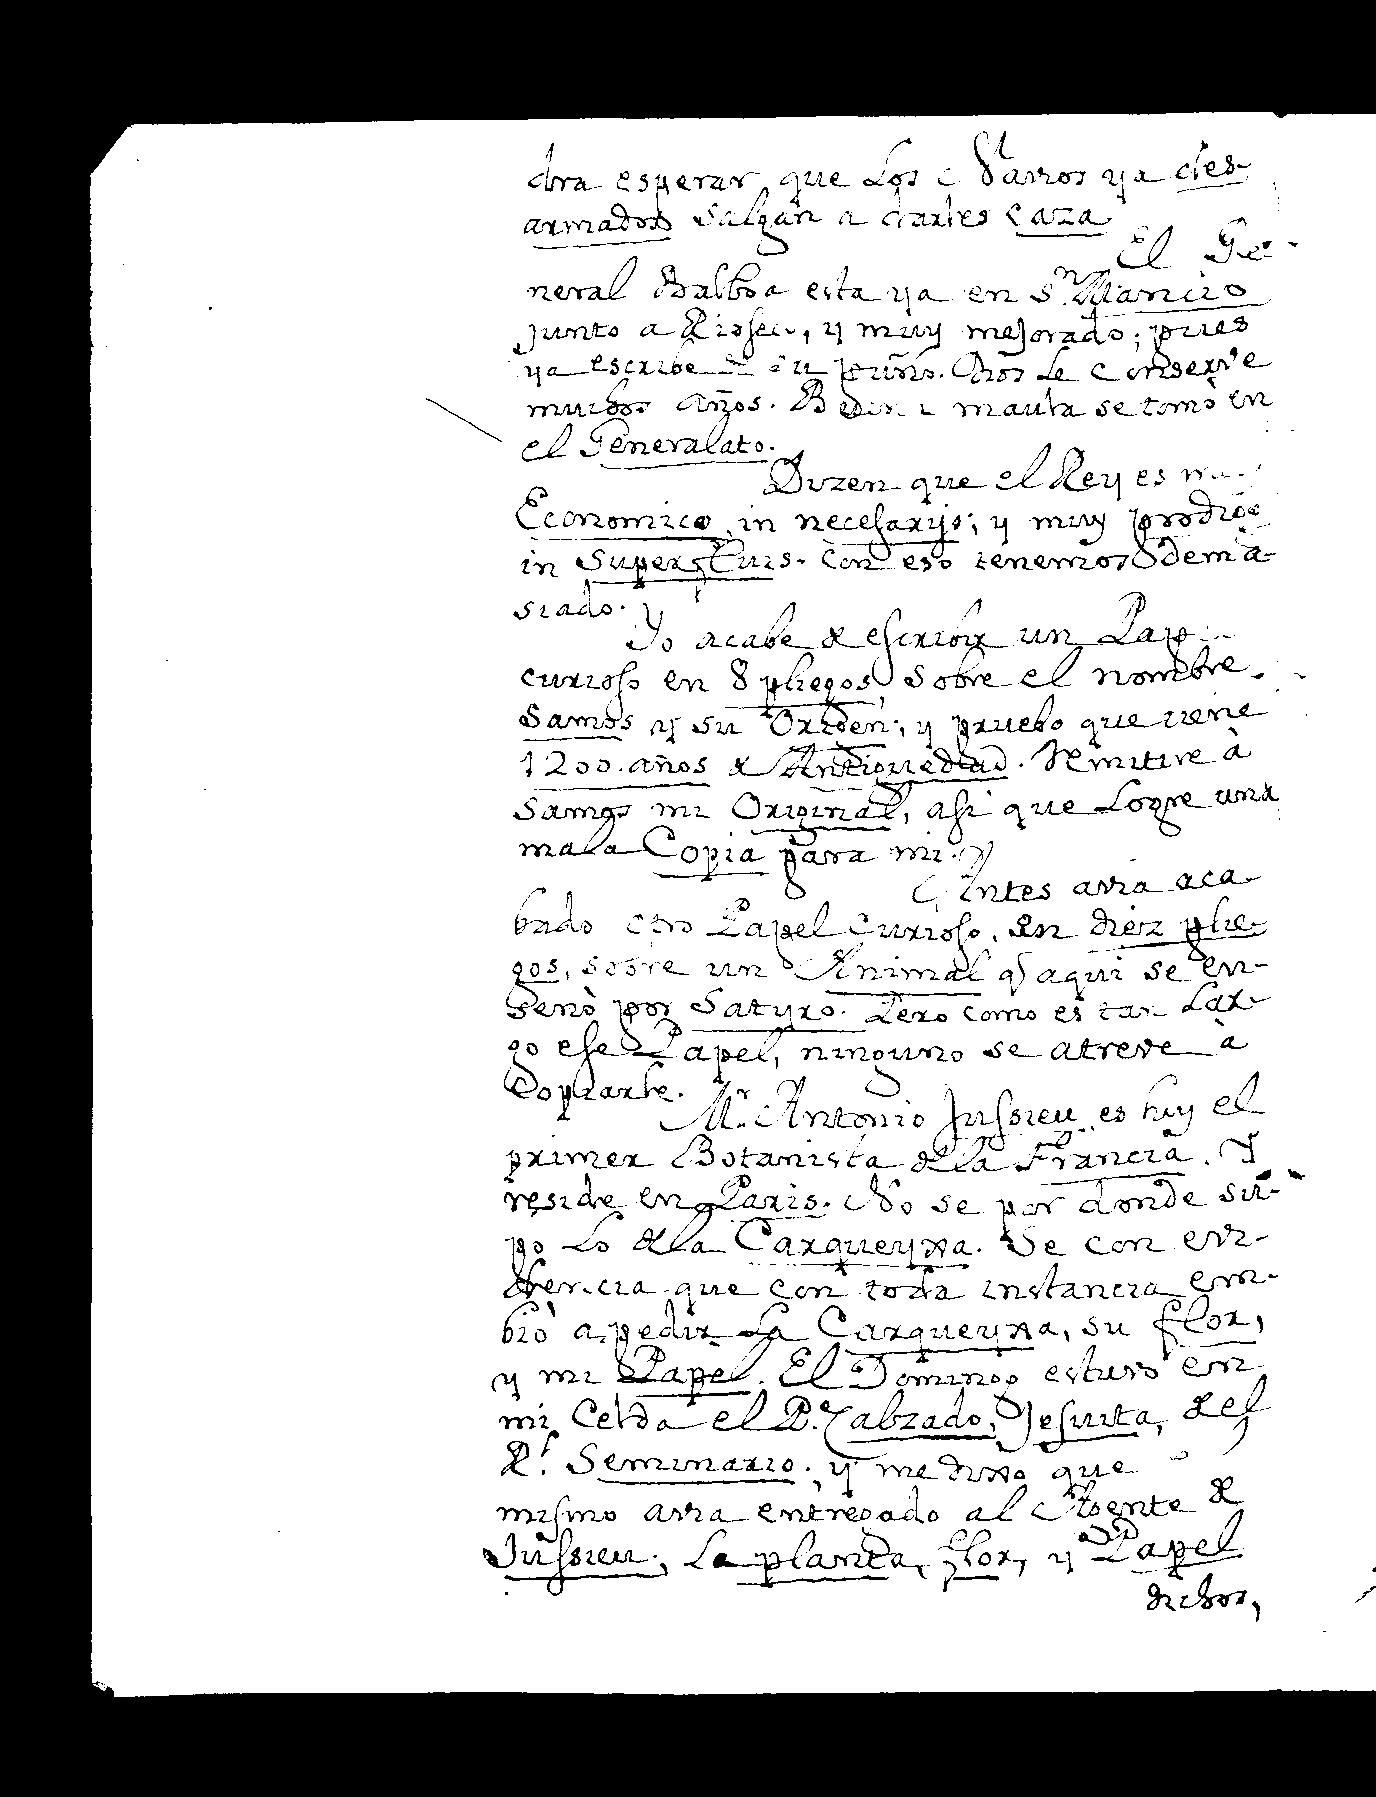 dra esperar que los Navios ya des-
armados salgan a darles caza
El Ge-
neral Balboa esta ya en Sn. Mancio
junto a Rioseco, y muy mejorado; pues
ya escribe de su puño. Dios le conserve
muchos años. maula se tomò en
el Generalato.
Dizen que el Rey es mu
Economico in necesarijs; y muy prodigo
in superfluis. Con eso tenemos dema-
siado.
Yo acabe de escribir un Pap
curioso en 8 pliegos, sobre el nombre
Samos y su Origen; y pruebo que tiene
1200. años de Antiguedad. Remitire à
Samos mi Original, asi que logre una
mala Copia para mi.
Antes avia aca-
bado otro Papel curioso, en diez plie-
gos, sobre un Animal q aqui se en-
señò por Satyro. Pero como es tan Lar-
go ese Papel, ninguno se atreve à
Copiarle.
Mr. Antonio Jussieu es hoy el
primer Botanista de la Francia. Y
reside en Paris. No se por donde su-
po lo de la Carqueyxa. Se con evi-
dencia que con toda instancia em-
biò a pedir la Carqueyxa, su flor,
y mi Papel. El Domingo estuvo en
mi Celda el P. Calzado, Jesuita, del
Rl. Seminario. y me dixo que
mismo avia entregado al Agente de
Jussieu, la planta, flor, y Papel
dichos,